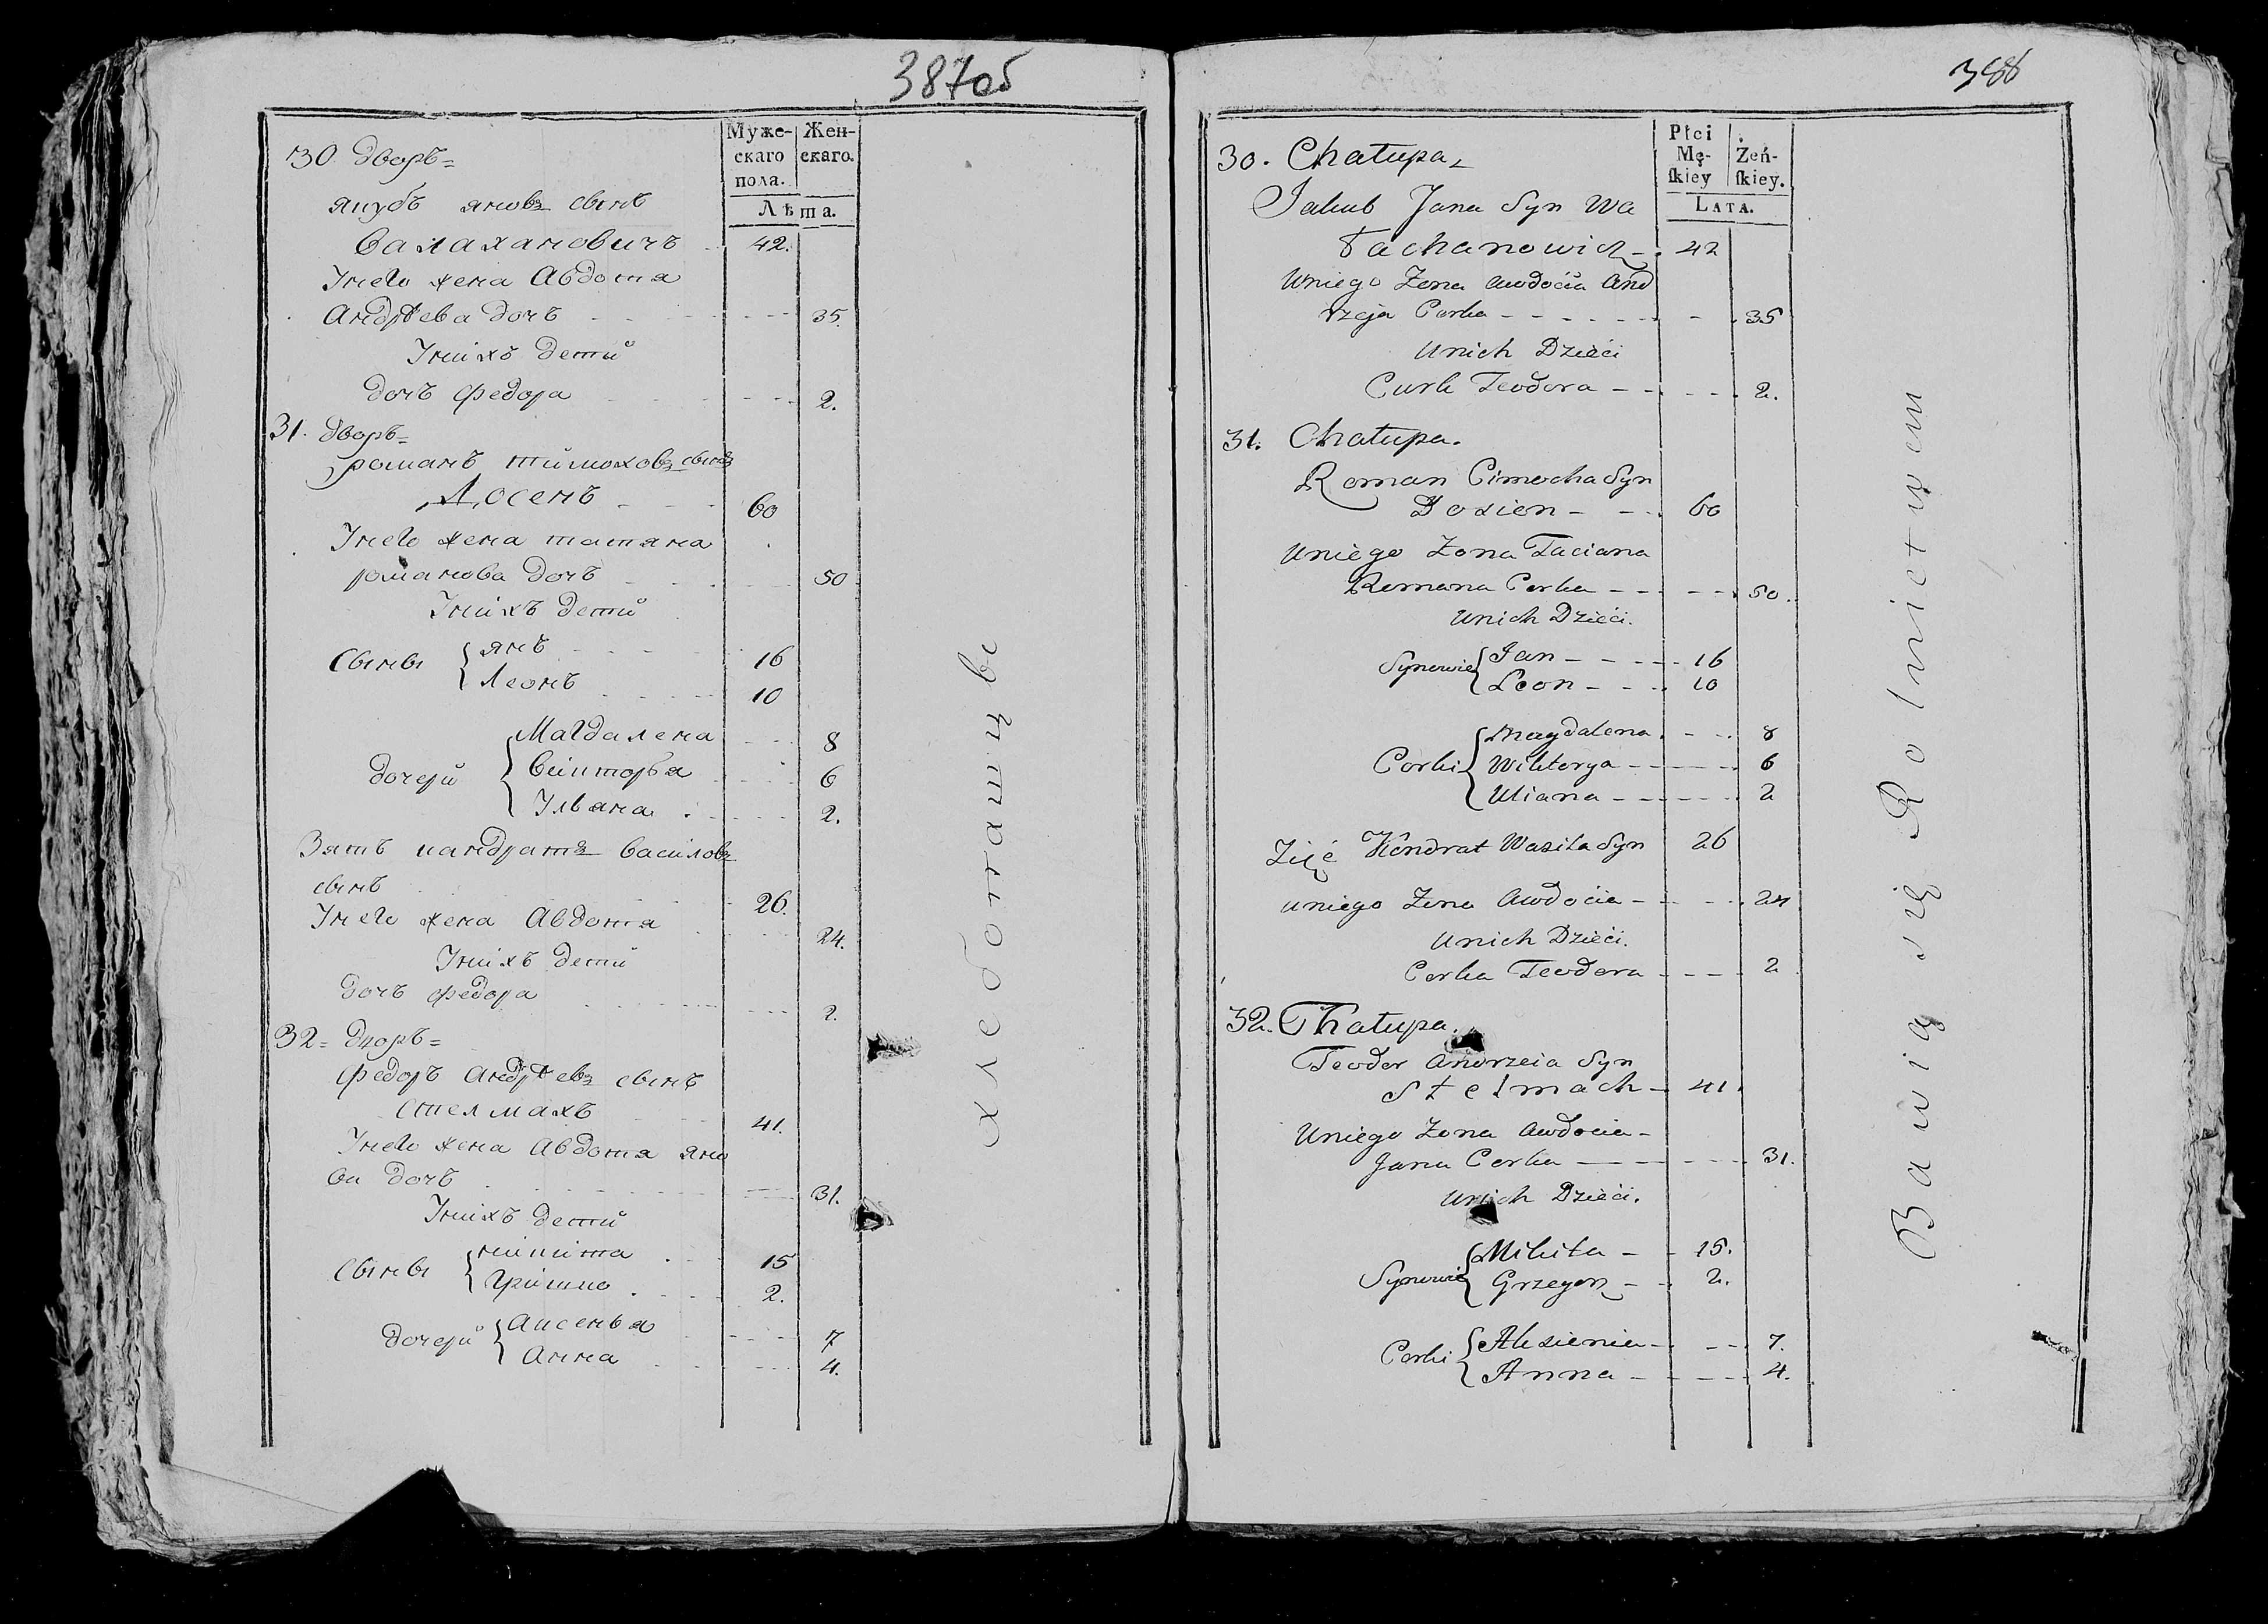 387об
Муже-
скаго
пола.
Жен-
скаго.
Лѣта.
30. дворъ=
якубъ яновъ сынъ
Валахановичъ 42.
Унего жена Авдотя
Андрѣева дочъ 35.
Унихъ детй
дочъ федора 2.
31. дворъ=
романъ тимоховъ сынъ
Лосенъ 60
Унего жена татяна
романова дочъ 50
Унихъ детй
Сыны { янъ 16
Леонъ 10
дочерй { Магдалена 8
Викторья 6
Ульяна 2.
Зять кандратъ василовъ
сынъ 26.
Унего жена Авдотя 24.
Унихъ детй
дочъ федора 2.
32= дворъ=
федоръ андрѣевъ сынъ
стелмахъ 41.
Унего жена Авдотя яно
ва дочъ 31.
Унихъ детй
Сыны { микита 15
Гришко 2.
дочерй { Аксенья 7
Анна 4.
хлебопашцы
388
Płci
Mę-
ſkiey
Żeń-
ſkiey.
LATA.
30. Chałupa
Jakub Jana Syn Wa
łachanowicz 42
Uniego Zona Awdocia And
rzeja Corka 35
Unich Dzieci
Curk Teodora 2.
31. Chałupa.
Roman Cimocha Syn
Łosien 60
Uniego Zona Taciana
Romana Corka 50.
Unich Dzieci.
Synowie { Jan 16
Leon 10
Corki { Magdalena 8
Wiktorya 6
Uliana 2
Zięć Kondrat Wasila Syn 26
Uniego Zona Awdocia 24
Unich Dzieci.
Corka Teodora 2
32. Chałupa.
Teodor Andrzeia Syn
Stelmach 41.
Uniego Zona Awdocia
Jana Corka 31.
Unich Dzieci.
Synowie { Mikita 15.
Grzegorz 2.
Corki { Aksienia 7.
Anna 4.
Bawią się Rolnictwem